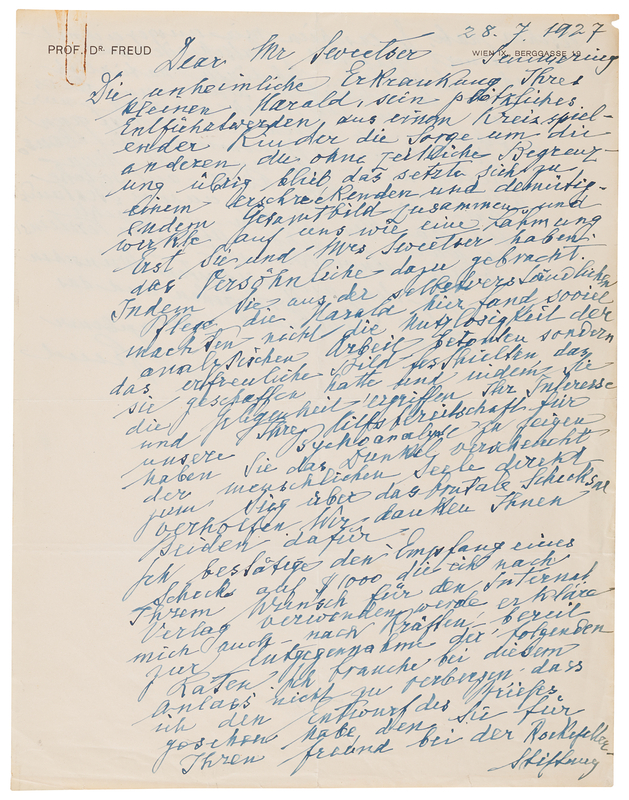 28. 7 1927
PROF. DR. FREUD
WIEN IX., BERGGASSE 19
Dear Mr Sweetser Semmering
Die unheimliche Erkrankung Ihres
kleinen Harald, sein plötzliches
Entführtwerden aus einem Kreis spiel-
ender Kinder die Sorge um die
anderen, die ohne zeitliche Begrenz-
ung übrig blieb das setzte sich zu
einem erschreckenden und demütig-
endem Gesamtbild zusammen und
wirkte auf uns wie eine Lähmung
Erst Sie und Mrs Sweetser haben
das Versöhnliche dazu gebracht.
Indem Sie aus der selbstverständlichen
Pflege die Harald hier fand soviel
machten nicht die Nutzlosigkeit der
analytischen Arbeit betonten sondern
das erfreuliche Bild festhielten das
sie geschaffen hatte und indem Sie
die Gelegenheit ergriffen Ihr Interesse
und Ihre Hilfsbereitschaft für
unsere Psychoanalyse zu zeigen
haben Sie das Dunkel verscheucht
der menschlichen Seele direkt
zum Sieg über das brutale Schicksal
verholfen Wir danken Ihnen
beiden dafür
Ich bestätige den Empfang eines
Schecks auf $ 1000 die ich nach
Ihrem Wunsch für den Internat
Verlag verwenden werde erkläre
mich auch - nach Kräften - bereit
zur Entgegennahme der folgenden
Raten Ich brauche bei diesem
Anlass nicht zu verbergen dass
ich den Entwurf des Briefes
gesehen habe den Sie für
Ihren Freund bei der Rockefeller-
Stiftung